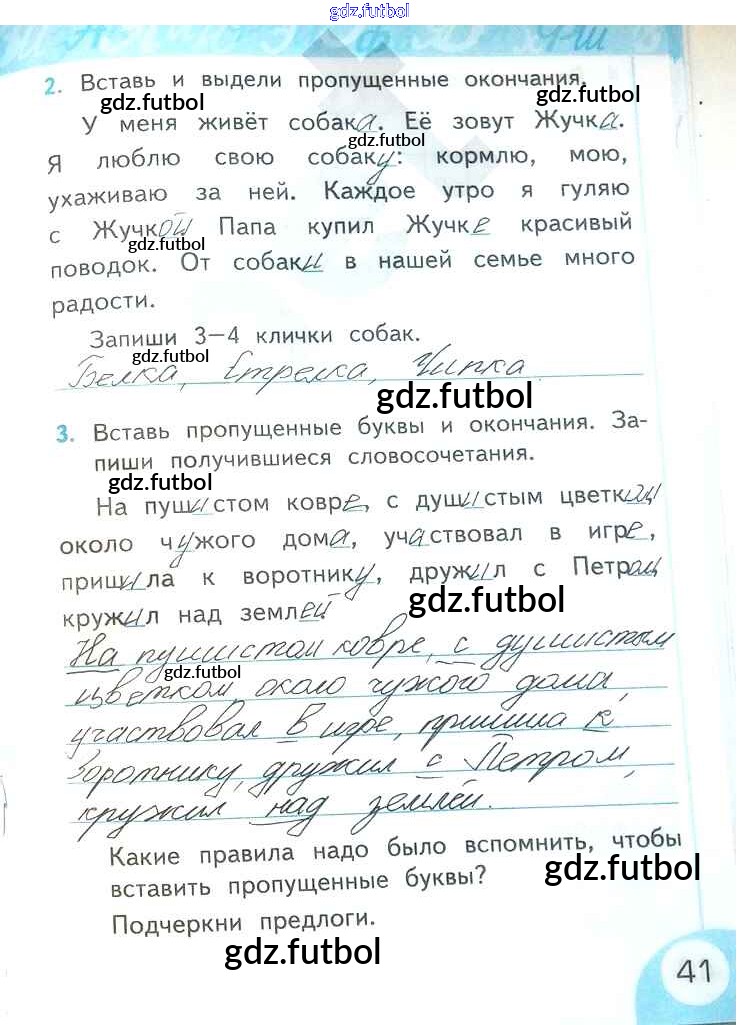 gdz.futbol
2. Вставь и выдели пропущенные окончания.
gdz.futbol
gdz.futbol
У меня живёт собака. Её зовут Жучка.
gdz.futbol
Я люблю свою собаку: кормлю, мою,
ухаживаю за ней. Каждое утро я гуляю
с Жучкой Папа купил Жучке красивый
gdz.futbol
поводок. От собаки в нашей семье много
радости.
Запиши 3—4 клички собак.
gdz.futbol
Белка, Стрелка, Чипка
gdz.futbol
3. Вставь пропущенные буквы и окончания. За-
пиши получившиеся словосочетания.
gdz.futbol
На пушистом ковре, с душистым цветком
около чужого дома, участвовал в игре,
пришила к воротнику, дружил с Петром
gdz.futbol
кружил над землей
На пушистом ковре, с душистым
gdz.futbol
цветком, около чужого дома,
участвовал в игре, пришила к
воротнику, дружил с Петром,
кружил над землей.
Какие правила надо было вспомнить, чтобы
gdz.futbol
вставить пропущенные буквы?
Подчеркни предлоги.
gdz.futbol
41